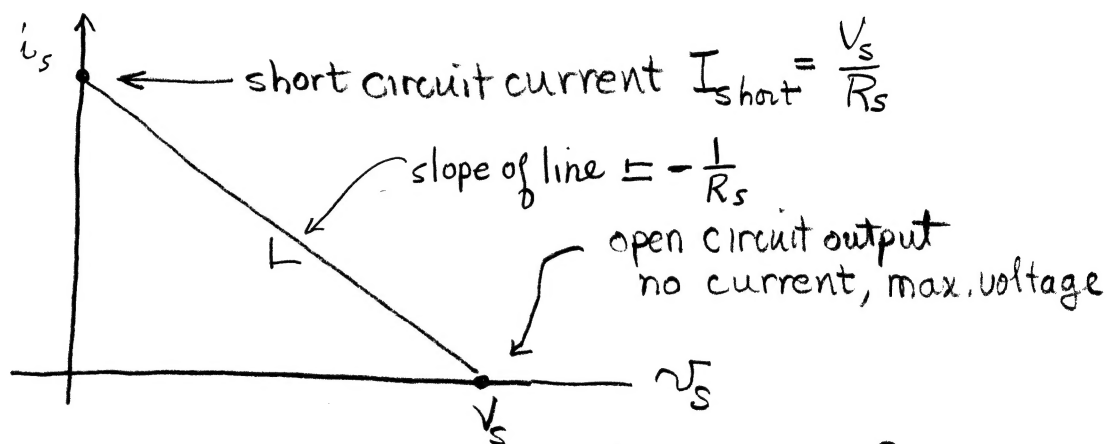 i_s
short circuit current I_short = V_s/R_s
slope of line = -1/R_s
open circuit output
no current, max. voltage
v_s
V_s